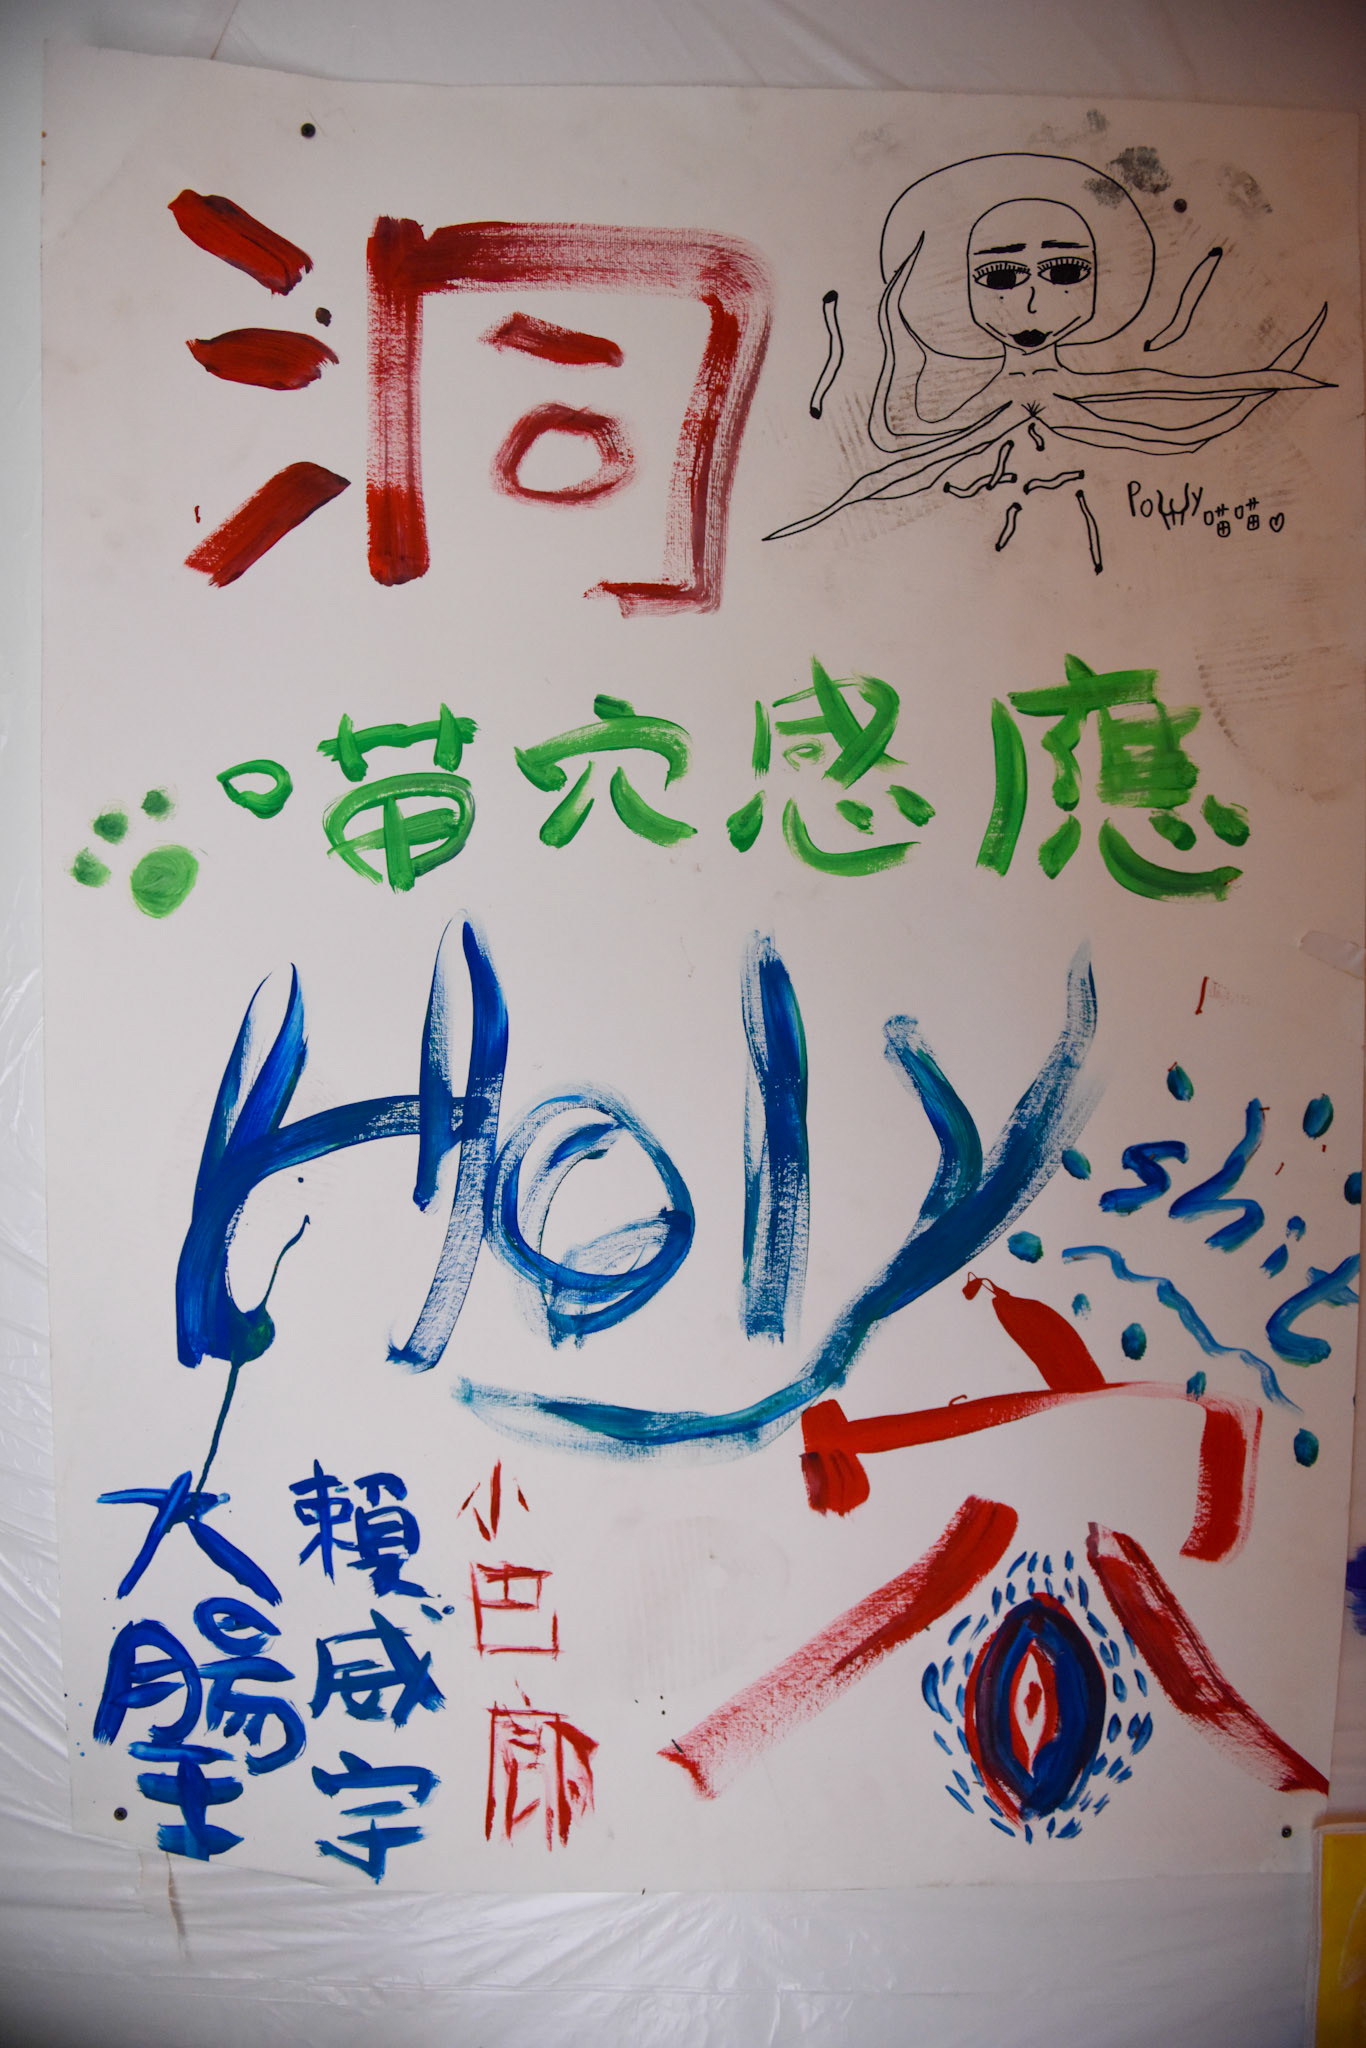 洞
Polly喵喵
喵穴感應
Holy
shit
穴
大腸王
賴威宇
小巴廊